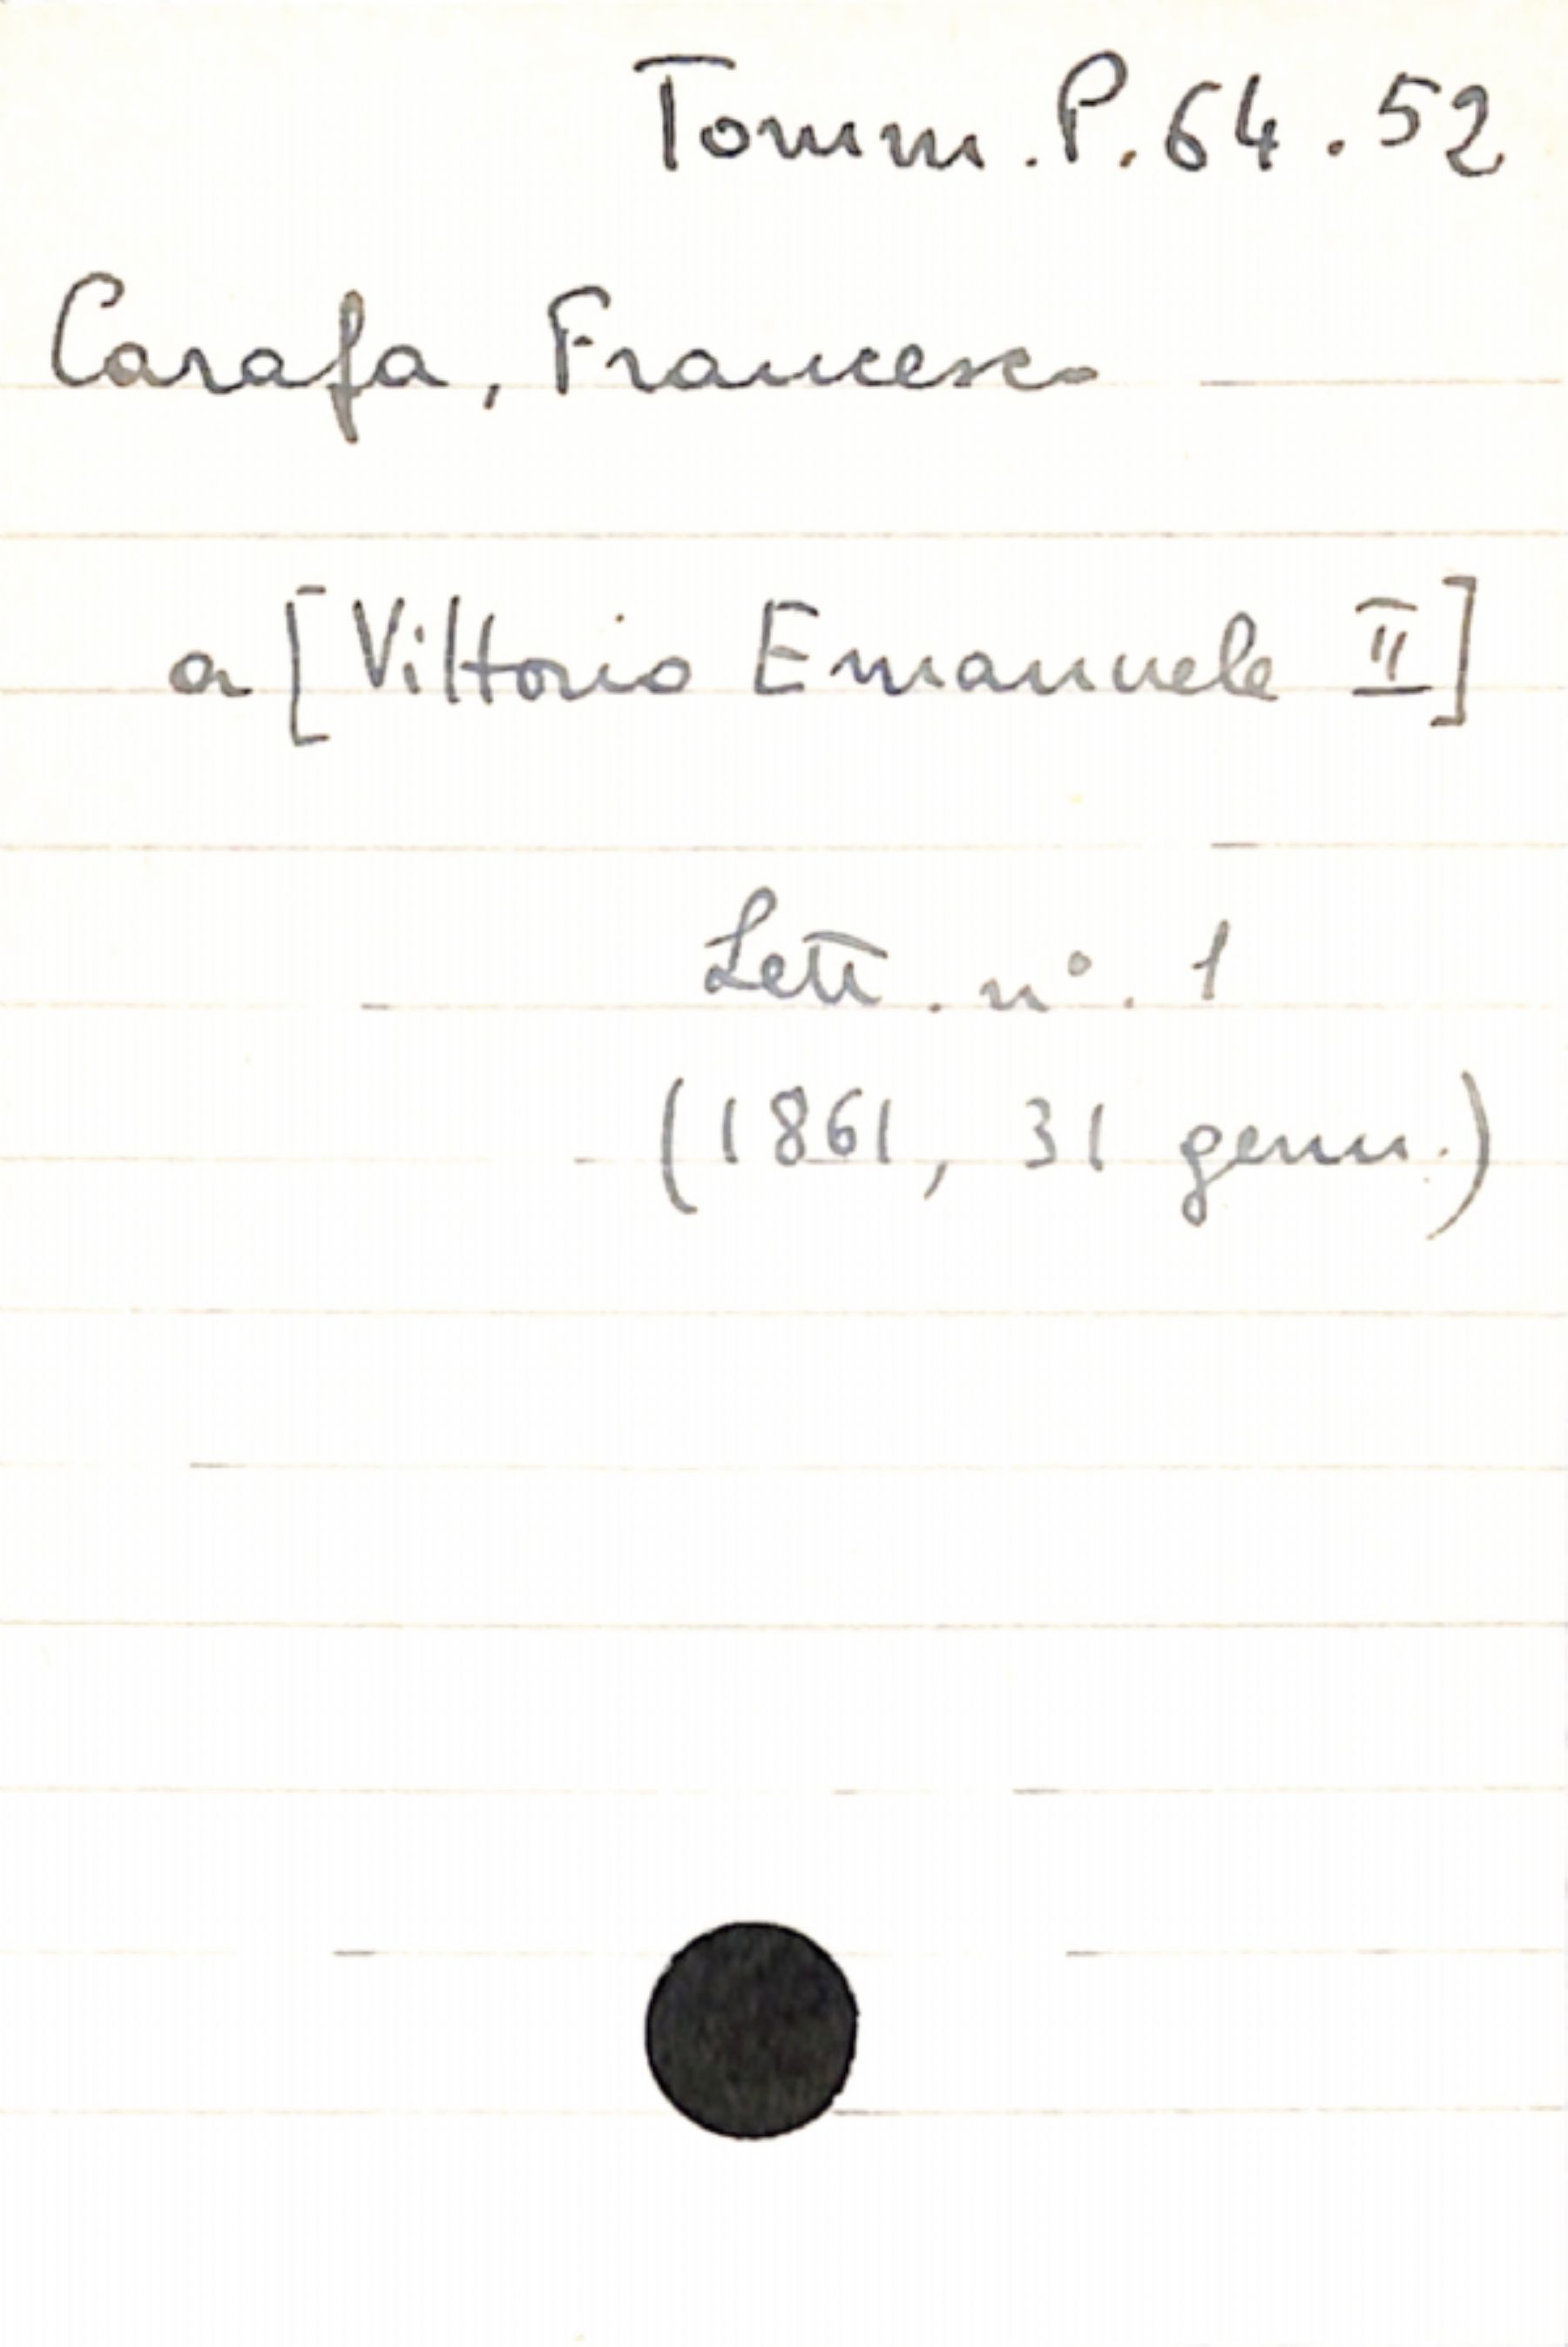 Tomm. P. 64. 52
Carafa, Francesco
a [Vittorio Emanuele II]
Lett. n°. 1
(1861, 31 genn.)